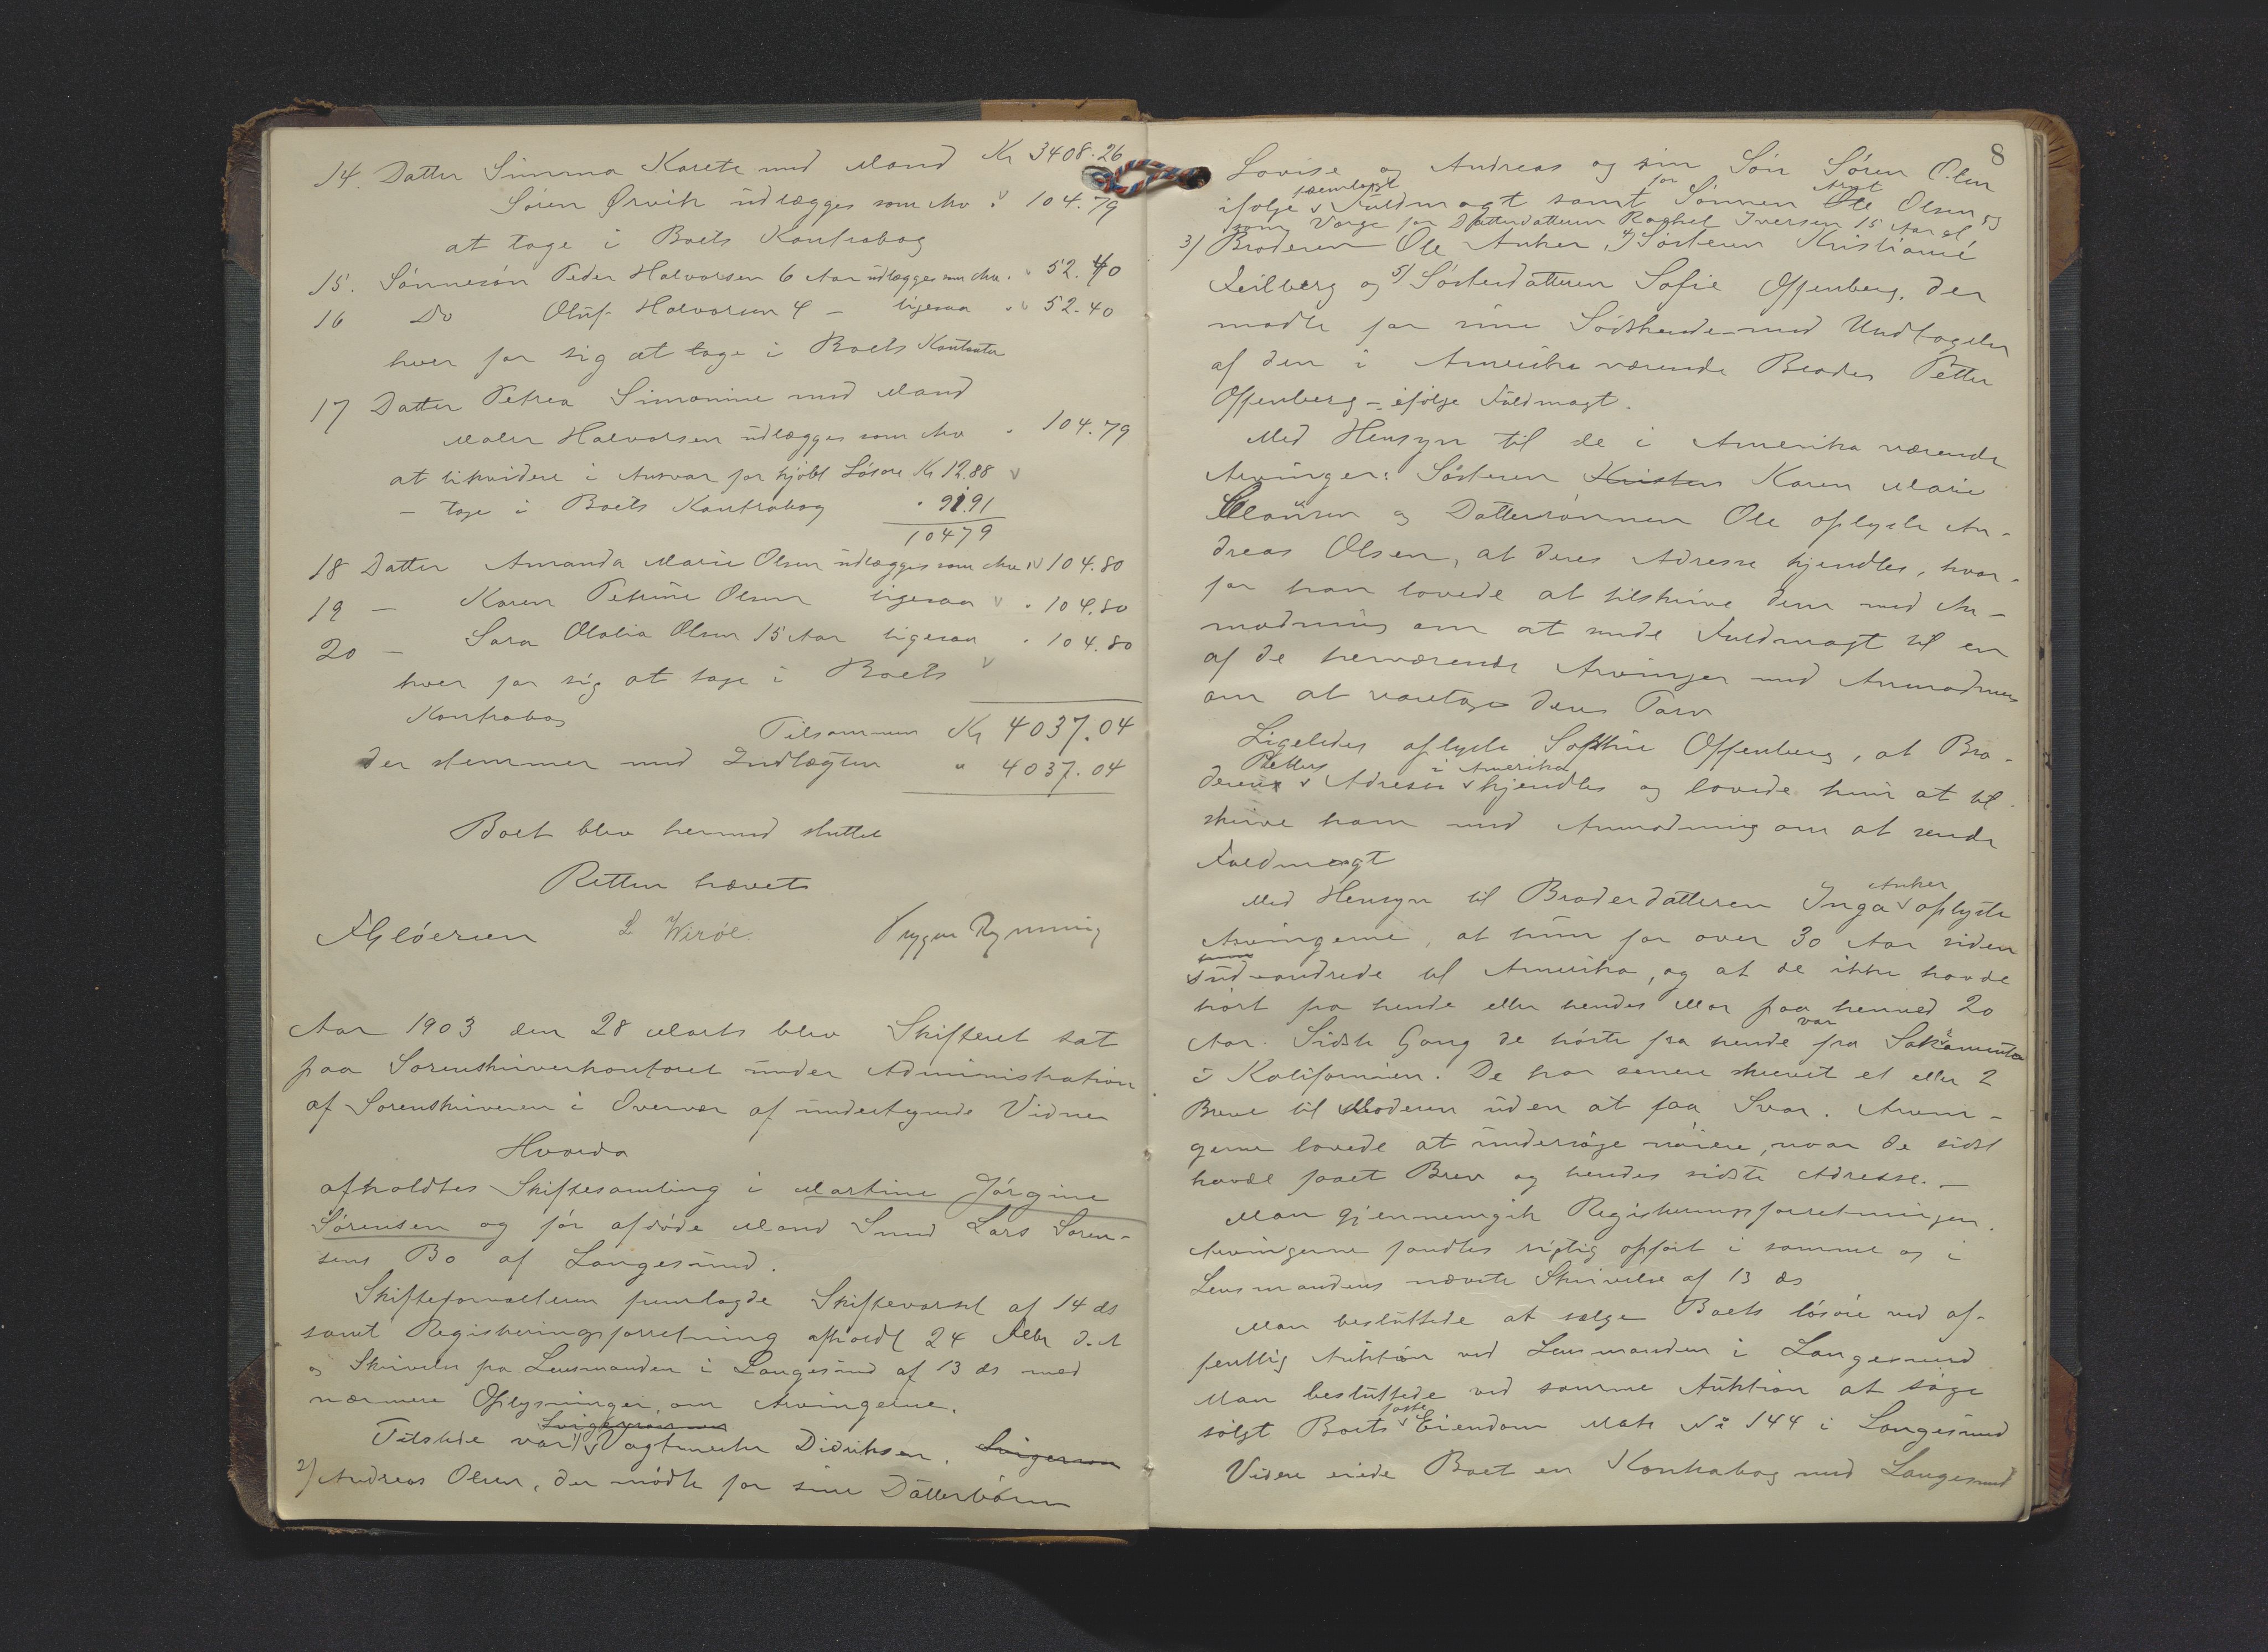 Kr 3408.26
14. Datter Simma Karete med Mand
Søren Ørvik udlægges som Arv " 104.79
at tage i Boets Kontrabog
15. Sønnesøn Peder Halvorsen 6 Aar udlægges som Arv " 52.40
16 Do Oluf Halvorsen 4 – ligesaa " 52.40
hver for sig at tage i Boets Kontanter
17 Datter Petrea Simonine med Mand
Maler Halvorsen udlægges som Arv " 104.79
at likvidere i Ansvar for kjøbt Løsøre Kr 12.88
– tage i Boets Kontrabog " 91.91
10479
18 Datter Amanda Marie Olsen udlægges som Arv " 104.80
19 – Karen Petrine Olsen ligesaa " 104.80
20 – Sara Olalia Olsen 15 Aar ligesaa " 104.80
hver for sig at tage i Boets
Kontrabog
Tilsammen Kr 4037.04
der stemmer med Indtægten " 4037.04
Boet blev hermed sluttet
Retten hævet
FGløersen L Werøe Trygve Rynning
Aar 1903 den 28 Marts blev Skifteret sat
paa Sorenskriverkontoret under Administration
af Sorenskriveren i Overvær af undertegnede Vidner
Hvorda
afholdtes Skiftesamling i Martine Jørgine
Sørensen og før afdøde Mand Smed Lars Soren-
sens Bo af Langesund.
Skifteforvalteren fremlagde Skiftevarsel af 14 ds
samt Registreringsforretning afholdt 24 Febr d.A
og Skrivelse fra Lensmanden i Langesund af 13 ds med
nærmere Oplysninger om Arvingerne.
Svigersønnen
Tilstede var 1) Vagtmester Didriksen, Svigersøn
2) Andreas Olsen, der mødte for sine Datterbørn
8
Lovise og Andreas og sin Søn Søren Olsen
fremlagt for Arnt
ifølge Fuldmagt samt Sønnen Ole Olsen og
som Værge for Datterdatteren Rachel Iversen 15 Aar gl
3) Broderen Ole Anker, 4) Søsteren Kristiane
Feilberg og 5) Søsterdatteren Sofie Offenberg, der
mødte for sine Sødskende med Undtagelse
af den i Amerika værende Broder Petter
Offenberg – ifølge Fuldmagt.
Med Hensyn til de i Amerika værende
Arvinger: Søsteren Kristens Karen Marie
Clausen og Dattersønnen Ole oplyste An-
dreas Olsen, at deres Adresse kjendtes, hvor-
for han lovede at tilskrive dem med An-
modning om at sende Fuldmagt til en
af de herværende Arvinger med Anmodning
om at varetage deres Tarv
Ligeledes oplyste Sofie Offenberg, at Bro-
Petters i Amerika
derens Adresse kjendtes og lovede hun at til-
skrive ham med Anmodning om at sende
Fuldmagt
Anker
Med Hensyn til Broderdatteren Inga oplyste
Arvingerne, at hun for over 30 Aar siden
udvandrede til Amerika, og at de ikke havde
hørt fra hende eller hendes Mor paa henved 20
var
Aar. Sidste Gang de hørte fra hende fra Sakramento
i Kalifornien. De har senere skrevet et eller 2
Breve til Moderen uden at faa Svar. Arvin-
gerne lovede at undersøge nøiere, naar de sidst
havde faaet Brev og hendes sidste Adresse. –
Man gjennemgik Registreringsforretningen.
Arvingerne fandtes rigtig opført i samme og i
Lensmandens nævnte Skrivelse af 13 ds
Man besluttede at sælge Boets løsøre ved of-
fentlig Auktion ved Lensmanden i Langesund
Man besluttede ved samme Auktion at søge
faste
solgt Boets Eiendom Matr No 144 i Langesund
Videre eiede Boet en Kontrabog med Langesund